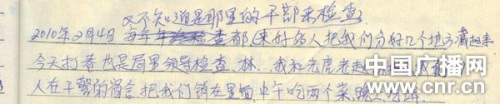 又不知道是那里的干部来检查
2010年2月4日每年年检查都来好多人把我们分好几个地方看起来
今天打着也是局里领导检查.林.我和元虎老赵
人在干警的宿舍把我们锁在里面中午吃两个菜
中国广播网
www.cnr.cn